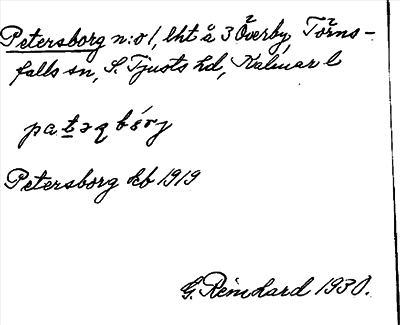 Petersborg n:o 1, lht å 3 Överby, Törns-
falls sn, S. Tjusts hd, Kalmar l
Petersborg Jeb 1919
G. Reinhard 1930.